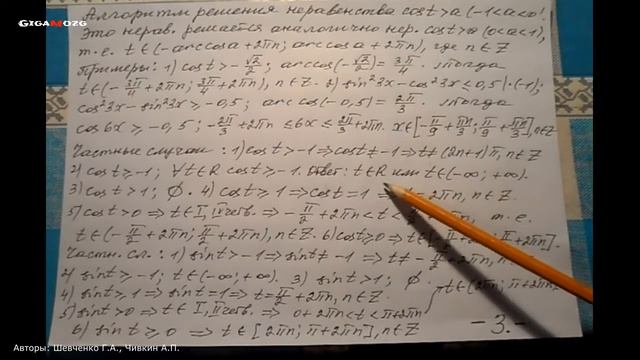 GIGAMOZG
Алгоритм решения неравенства cost>a (-1<a<0).
Это нерав. решается аналогично нер. cost>a (0<a<1),
т.е. t∈(-arccosa+2πn; arccosa+2πn), где n∈Z
Примеры: 1) cost>-√2/2; arccos(-√2/2)=3π/4. Тогда
t∈(-3π/4+2πn; 3π/4+2πn), n∈Z. 2) sin²3x-cos²3x≤0,5|·(-1);
cos²3x-sin²3x≥-0,5; arccos(-0,5)=2π/3. Тогда
cos6x≥-0,5; -2π/3+2πn≤6x≤2π/3+2πn. x∈[-π/9+πn/3; π/9+πn/3], n∈Z
Частные случаи: 1) cost>-1⇒cost≠-1⇒t≠(2n+1)π, n∈Z
2) cost≥-1; ∀t∈R cost≥-1. Ответ: t∈R или t∈(-∞;+∞).
3) cost>1; Ø. 4) cost≥1⇒cost=1 2πn, n∈Z.
5) cost>0⇒t∈I, IV четв.⇒-π/2+2πn<t< +2πn, т.е.
t∈(-π/2+2πn; π/2+2πn), n∈Z. 6) cost≥0⇒t∈[ +2πn].
Частн. сл.: 1) sint>-1⇒sint≠-1⇒t≠-π/2+2πn, n∈Z
2) sint≥-1; t∈(-∞;+∞). 3) sint>1; Ø.
4) sint≥1⇒sint=1⇒t=π/2+2πn, n∈Z. t∈(2πn; π+2πn)
5) sint>0⇒t∈I, II четв.⇒0+2πn<t<π+2πn
6) sint≥0⇒t∈[2πn; π+2πn], n∈Z
-3.-
Авторы: Шевченко Г.А., Чивкин А.П.